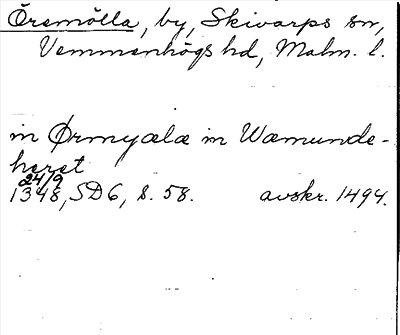 Öremölla, by, Skivarps sn,
Vemmenhögs hd, Malm. l.
in Ørmyælæ in Wæmunde-
heret
24/9
1348, SD6, s. 58. avskr. 1494.